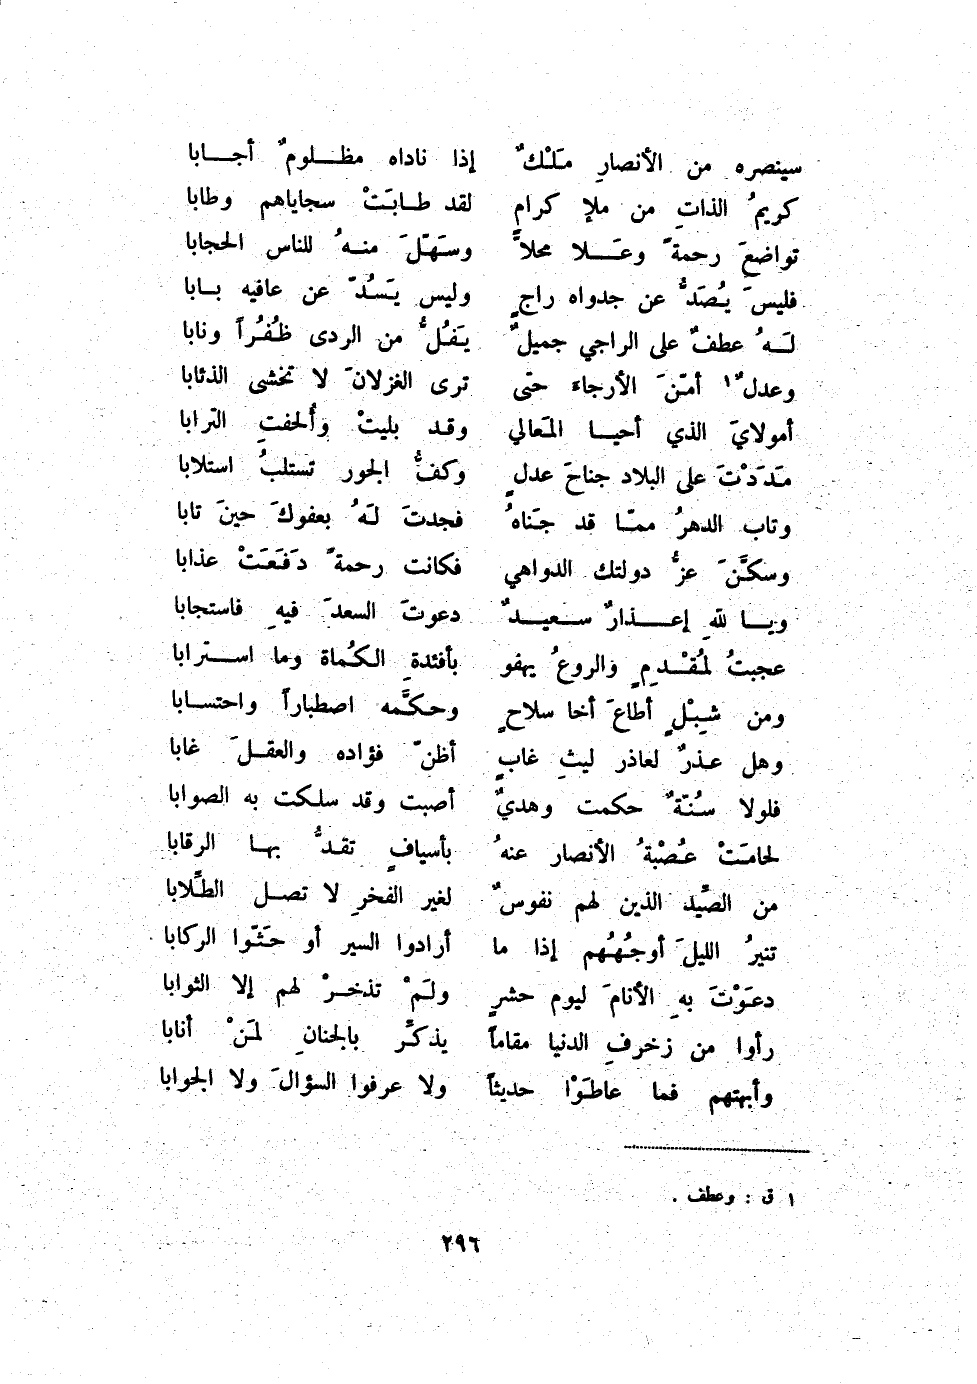 سينصره من الأنصارِ مَلَكٌ إذا ناداه مظلومٌ أجابا
كريمُ الذاتِ من ملإ كرامٍ لقد طابَتْ سجاياهم وطابا
تواضعَ رحمةً وعَلا محلاًّ وسَهّلَ منهُ للناس الحجابا
فليسَ يُصَدُّ عن جدواه راجٍ وليس يَسُدّ عن عافيه بابا
لَهُ عطفٌ على الراجي جميلٌ يَفُلُّ من الردى ظُفُراً ونابا
وعدلٌ١ أمّنَ الأرجاءَ حتى ترى الغزلانَ لا تخشى الذئابا
أمولايَ الذي أحيا المَعالي وقد بليتْ وأُلحفتِ الترابا
مَدَدْتَ على البلاد جناحَ عدلٍ وكفُّ الجور تستلبُ استلابا
وتاب الدهرُ ممّا قد جَناهُ فجدتَ لَهُ بعفوكَ حينَ تابا
وسكَّنَ عزُّ دولتك الدواهي فكانت رحمةً دَفَعَتْ عذابا
ويا للهِ إعذارٌ سعيدٌ دعوتَ السعدَ فيهِ فاستجابا
عجبتُ لمُقْدِمٍ والروعُ يهفو بأفئدةِ الكُماة وما استرابا
ومن شِبْلٍ أطاعَ أخا سلاحٍ وحكَّمه اصطباراً واحتسابا
وهل عذرٌ لعاذر ليثِ غابٍ أظنّ فؤاده والعقلَ غابا
فلولا سُنّةٌ حكمت وهديٌ أصبت وقد سلكت به الصوابا
لحامَتْ عُصْبةُ الأنصار عنهُ بأسيافٍ تقدُّ بها الرقابا
من الصِّيد الذين لهم نفوسٌ لغير الفخرِ لا تصل الطِّلابا
تنيرُ الليلَ أوجُهُهم إذا ما أرادوا السير أو حَثّوا الركابا
دعَوْتَ بهِ الأنامَ ليوم حشرٍ ولَمْ تذخرْ لهم إلا الثوابا
رأوا من زخرفِ الدنيا مقاماً يذكِّر بالجنانِ لمَنْ أنابا
وأبهتهم فما عاطَوْا حديثاً ولا عرفوا السؤالَ ولا الجوابا
١ ق : وعطف .
٢٩٦